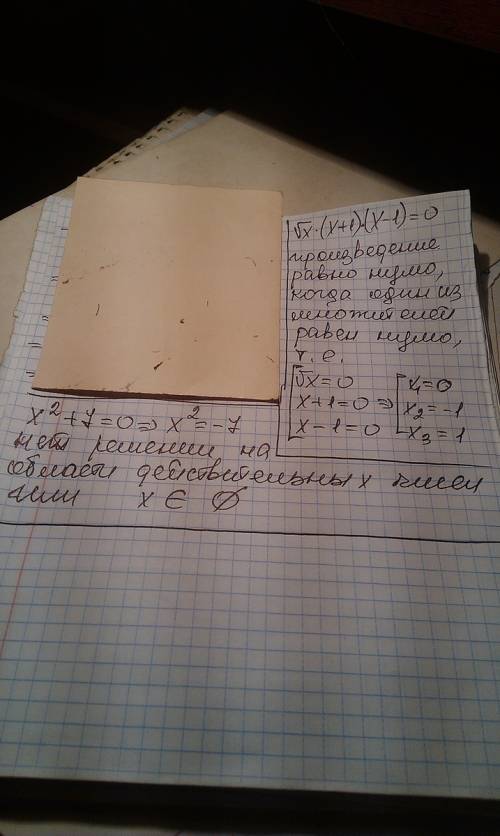 √x·(x+1)·(x-1)=0
произведение
равно нулю,
когда один из
множителей
равен нулю,
т.е.
[√x=0
x+1=0 ⇒
x-1=0
[x₁=0
x₂=-1
x₃=1
x²+7=0 ⇒ x²=-7
нет решений на
области действительных чисел
или x ∈ ∅